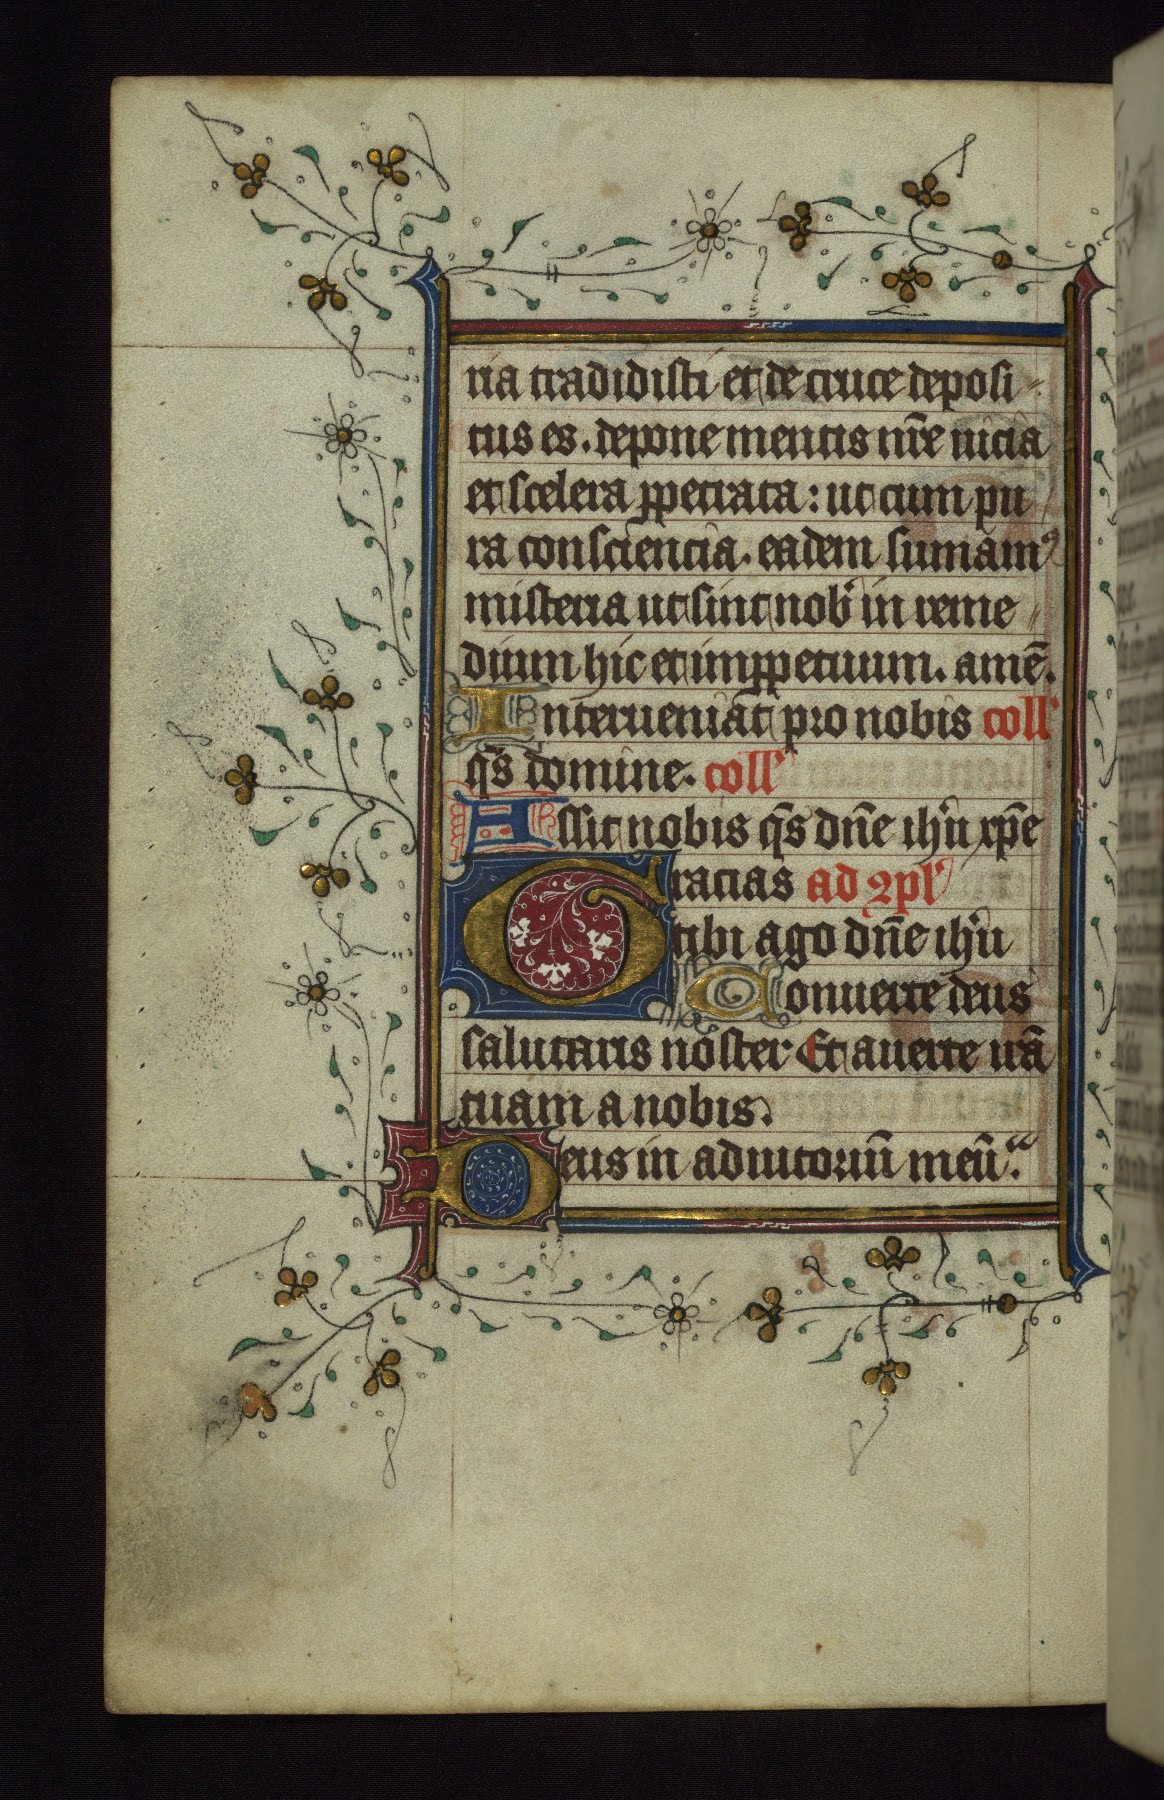 ria tradidisti et de cruce deposi
tus es. depone mentis nr̄e uicia
et scelera ꝑpetrata: ut cum pu
ra consciencia. eadem sumamꝰ
misteria ut sint nob̄ in reme
dium hic et in ꝑpetuum. amē.
Interueniāt pro nobis coll'
qs̄ domine. coll'
Assit nobis qs̄ dn̄e ih'u xp̄e
Gracias ad ꝯpl'
tibi ago dn̄e ih'u
Conuerte deus
salutaris noster Et auerte irā
tuam a nobis.
Deus in adiutoriū meū.